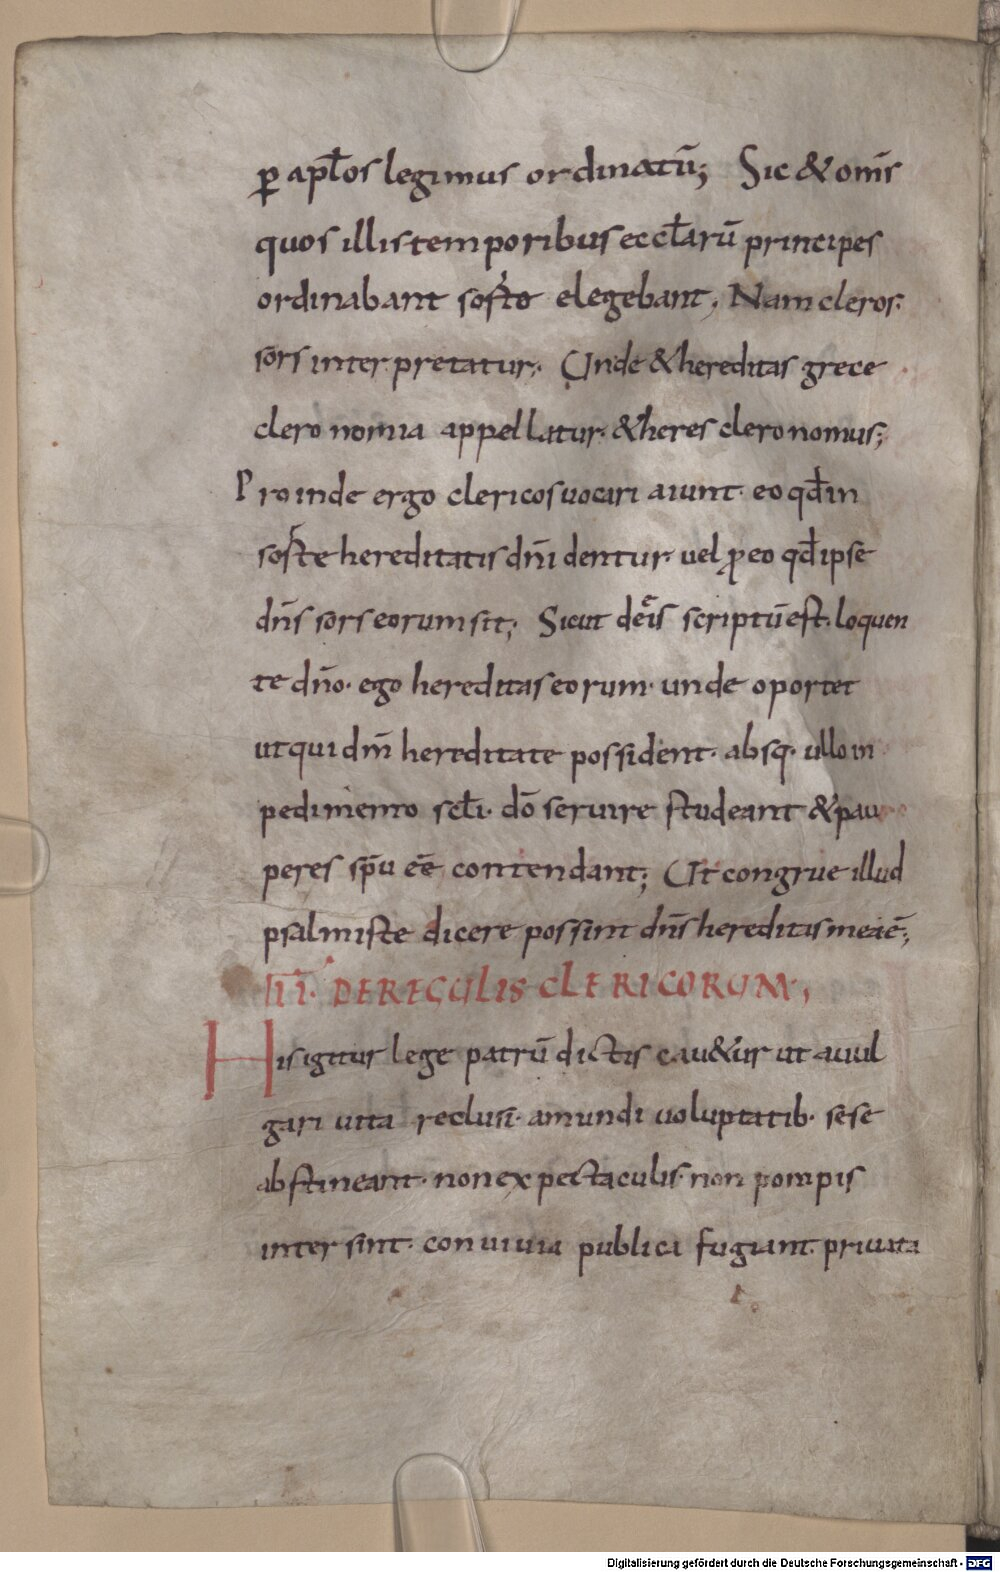 ꝑ apl̄os legimus ordinatū; Sic & om̄s
quos illis temporibus eccl̄arū principes
ordinabant sorte elegebant; Nam cleros.
sors interpretatur; Unde & hereditas grece
cleronomia appellatur. & heres cleronomus;
Proinde ergo clericos uocari aiunt. eo qd̄ in
sorte hereditatis dn̄i dentur. uel ꝓ eo qd̄ ipse
dn̄s sors eorum sit; Sicut de eis scriptū est. loquen
te dn̄o. ego hereditas eorum. unde oportet
ut qui dm̄ hereditate possident. absq. ullo in
pedimento scl̄i. dō seruire studeant & pau
peres sp̄u eē contendant; Ut congrue illud
psalmiste dicere possint dn̄s hereditas meae̅;
II. DE REGULIS CLERICORUM;
His igitur lege patrū dictis cau&ur ut a uul
gari uita reclusi. a mundi uoluptatib. sese
abstineant. non expectaculis. non pompis
intersint. conuiuia publica fugiant. priuata
Digitalisierung gefördert durch die Deutsche Forschungsgemeinschaft - DFG